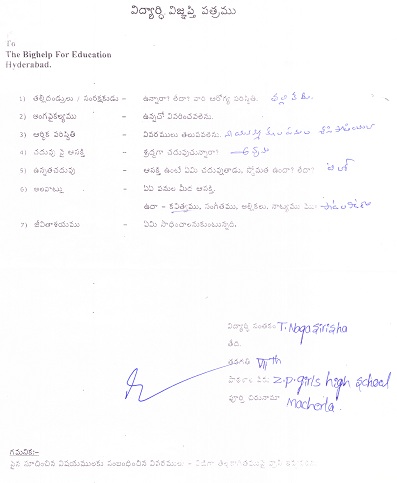 విద్యార్థి విజ్ఞప్తి పత్రము
To
The Bighelp For Education
Hyderabad.
1) తల్లిదండ్రులు / సంరక్షకుడు – ఉన్నారా? లేదా? వారి ఆరోగ్య పరిస్థితి.
2) అంగవైకల్యము – ఉన్నచో వివరించవలెను.
3) ఆర్థిక పరిస్థితి – వివరములు తెలుపవలెను.
4) చదువు పై ఆసక్తి – శ్రద్ధగా చదువుచున్నారా?
5) ఉన్నతచదువు – ఆసక్తి ఉంటే ఏమి చదువుతాడు, స్తోమత ఉందా? లేదా?
6) అలవాట్లు – ఏఏ పనుల మీద ఆసక్తి.
ఉదా – కవిత్వము, సంగీతము, అల్లికలు, నాట్యము
7) జీవితాశయము – ఏమి సాధించాలనుకుంటున్నది.
విద్యార్థి సంతకం T. Naga sirisha
తేది.
తరగతి VII th
పాఠశాల పేరు Z.P. girls high school
పూర్తి చిరునామా Macherla.
గమనిక:-
పైన సూచించిన విషయములకు సంబంధించిన వివరములు –